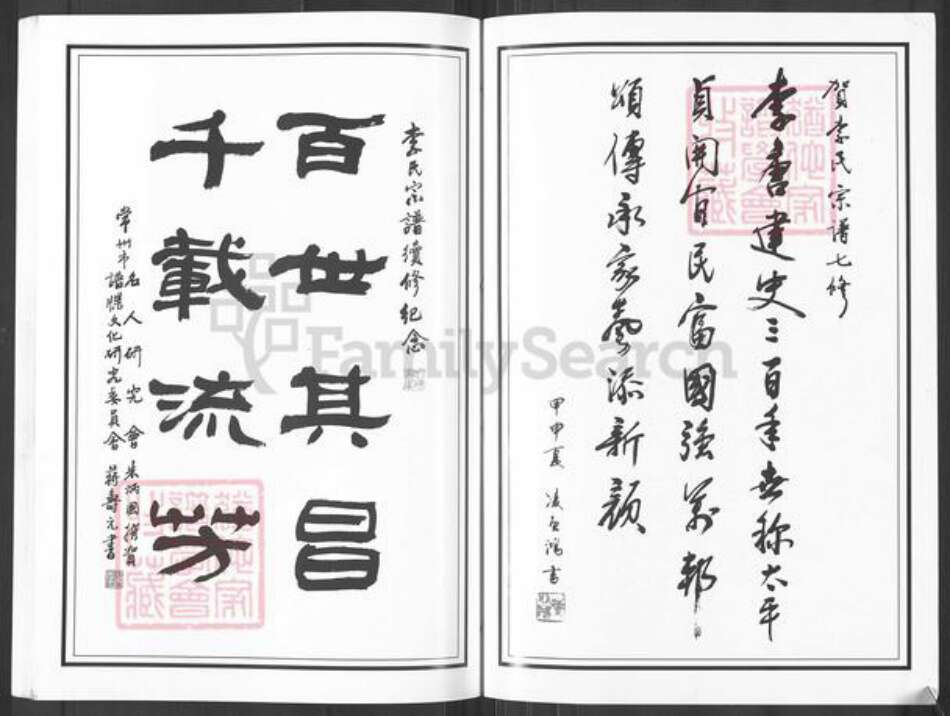 賀李氏宗譜七修
李唐建史三百年世称太平
貞開宦民富國強萬邦
頌傳承家藝添新顏
甲申夏
李氏宗譜續修紀念
百世其昌
千載流芳
常州市名人研究會 朱炳國撰賀
譜牒文化研究委員會 蔣壽元書
FamilySearch